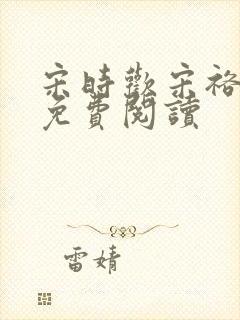 宋時歡宋裕
免費閱讀
雷婧